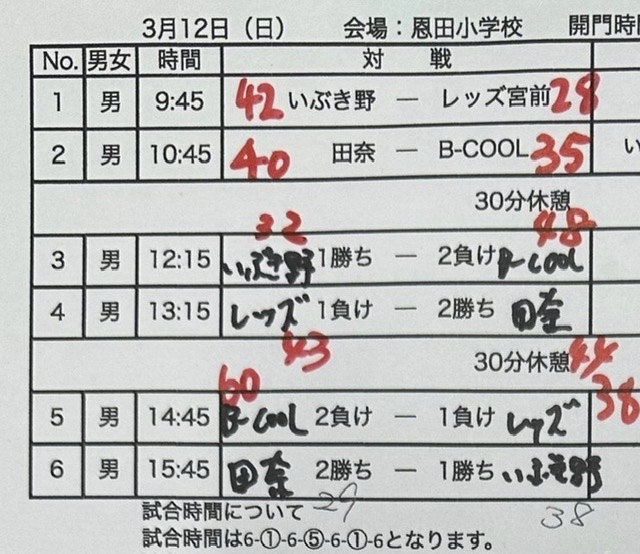 3月12日（日） 会場：恩田小学校 開門時
No. 男女 時間 対 戦
1 男 9:45 42 いぶき野 — レッズ宮前 28
2 男 10:45 40 田奈 — B-COOL 35 い
30分休憩
32 48
3 男 12:15 いぶき野 1勝ち — 2負け B-COOL
4 男 13:15 レッズ 1負け — 2勝ち 田奈
43 30分休憩 44
60 38
5 男 14:45 B-COOL 2負け — 1負け レッズ
6 男 15:45 田奈 2勝ち — 1勝ち いぶき野
試合時間について 29 38
試合時間は6-①-6-⑤-6-①-6となります。